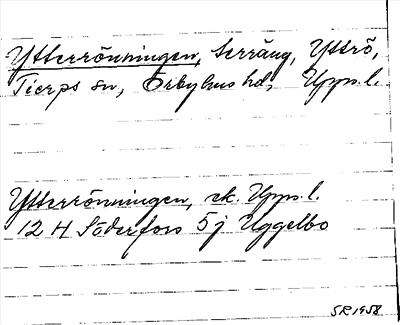 Ytterrönningen, terräng, Yttrö,
Tierps sn, Örbyhus hd, Upps.l.
Ytterrönningen, ek. Upps.l.
12 H Söderfors 5 j Uggelbo
SR 1958